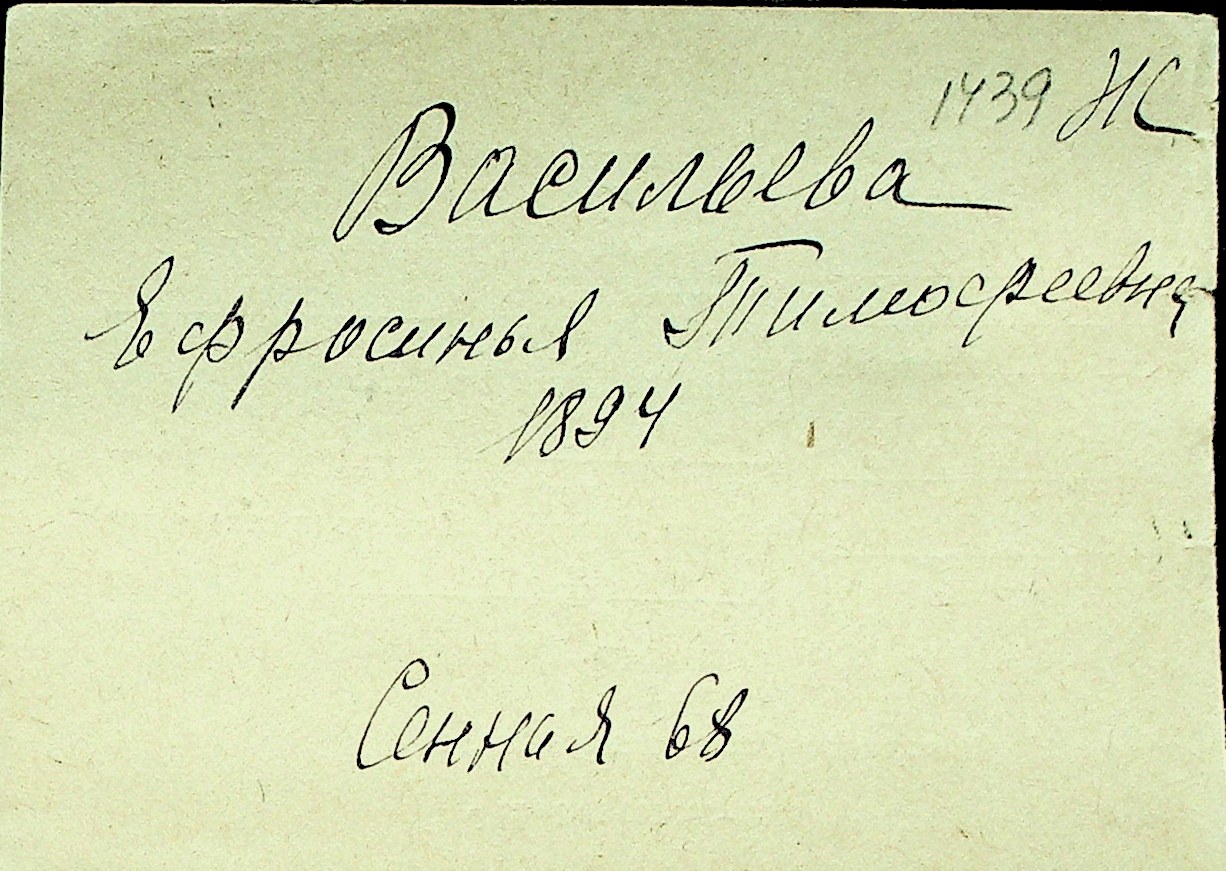 1439 НС
Васильева
Ефросинья Тимофеевна
1894
Сенная 68